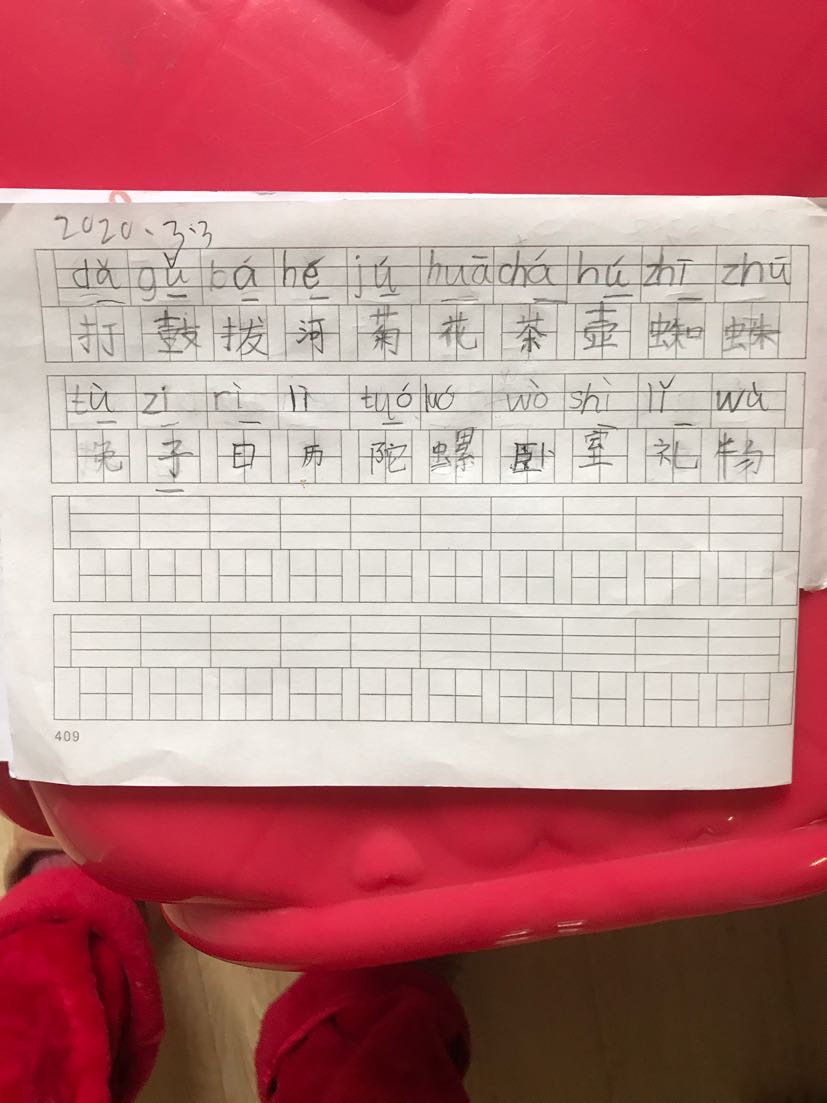 2020.3.3
dǎ gǔ bá hé jú huā chá hú zhī zhū
打鼓拔河菊花茶壶蜘蛛
tù zi rì lì tuó luó wò shì lǐ wù
兔子日历陀螺卧室礼物
409